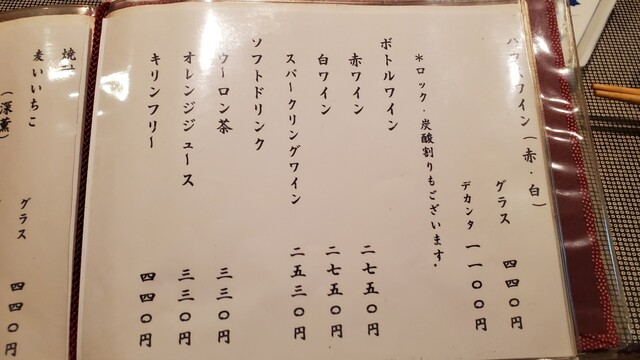 ハウスワイン（赤・白）
グラス 四四〇円
デカンタ 一一〇〇円
＊ロック・炭酸割りもございます。
ボトルワイン
赤ワイン 二七五〇円
白ワイン 二七五〇円
スパークリングワイン 二五三〇円
ソフトドリンク
ウーロン茶 三三〇円
オレンジジュース 三三〇円
キリンフリー 四四〇円
焼
麦いいちこ
（深薫）
グラス
四四〇円